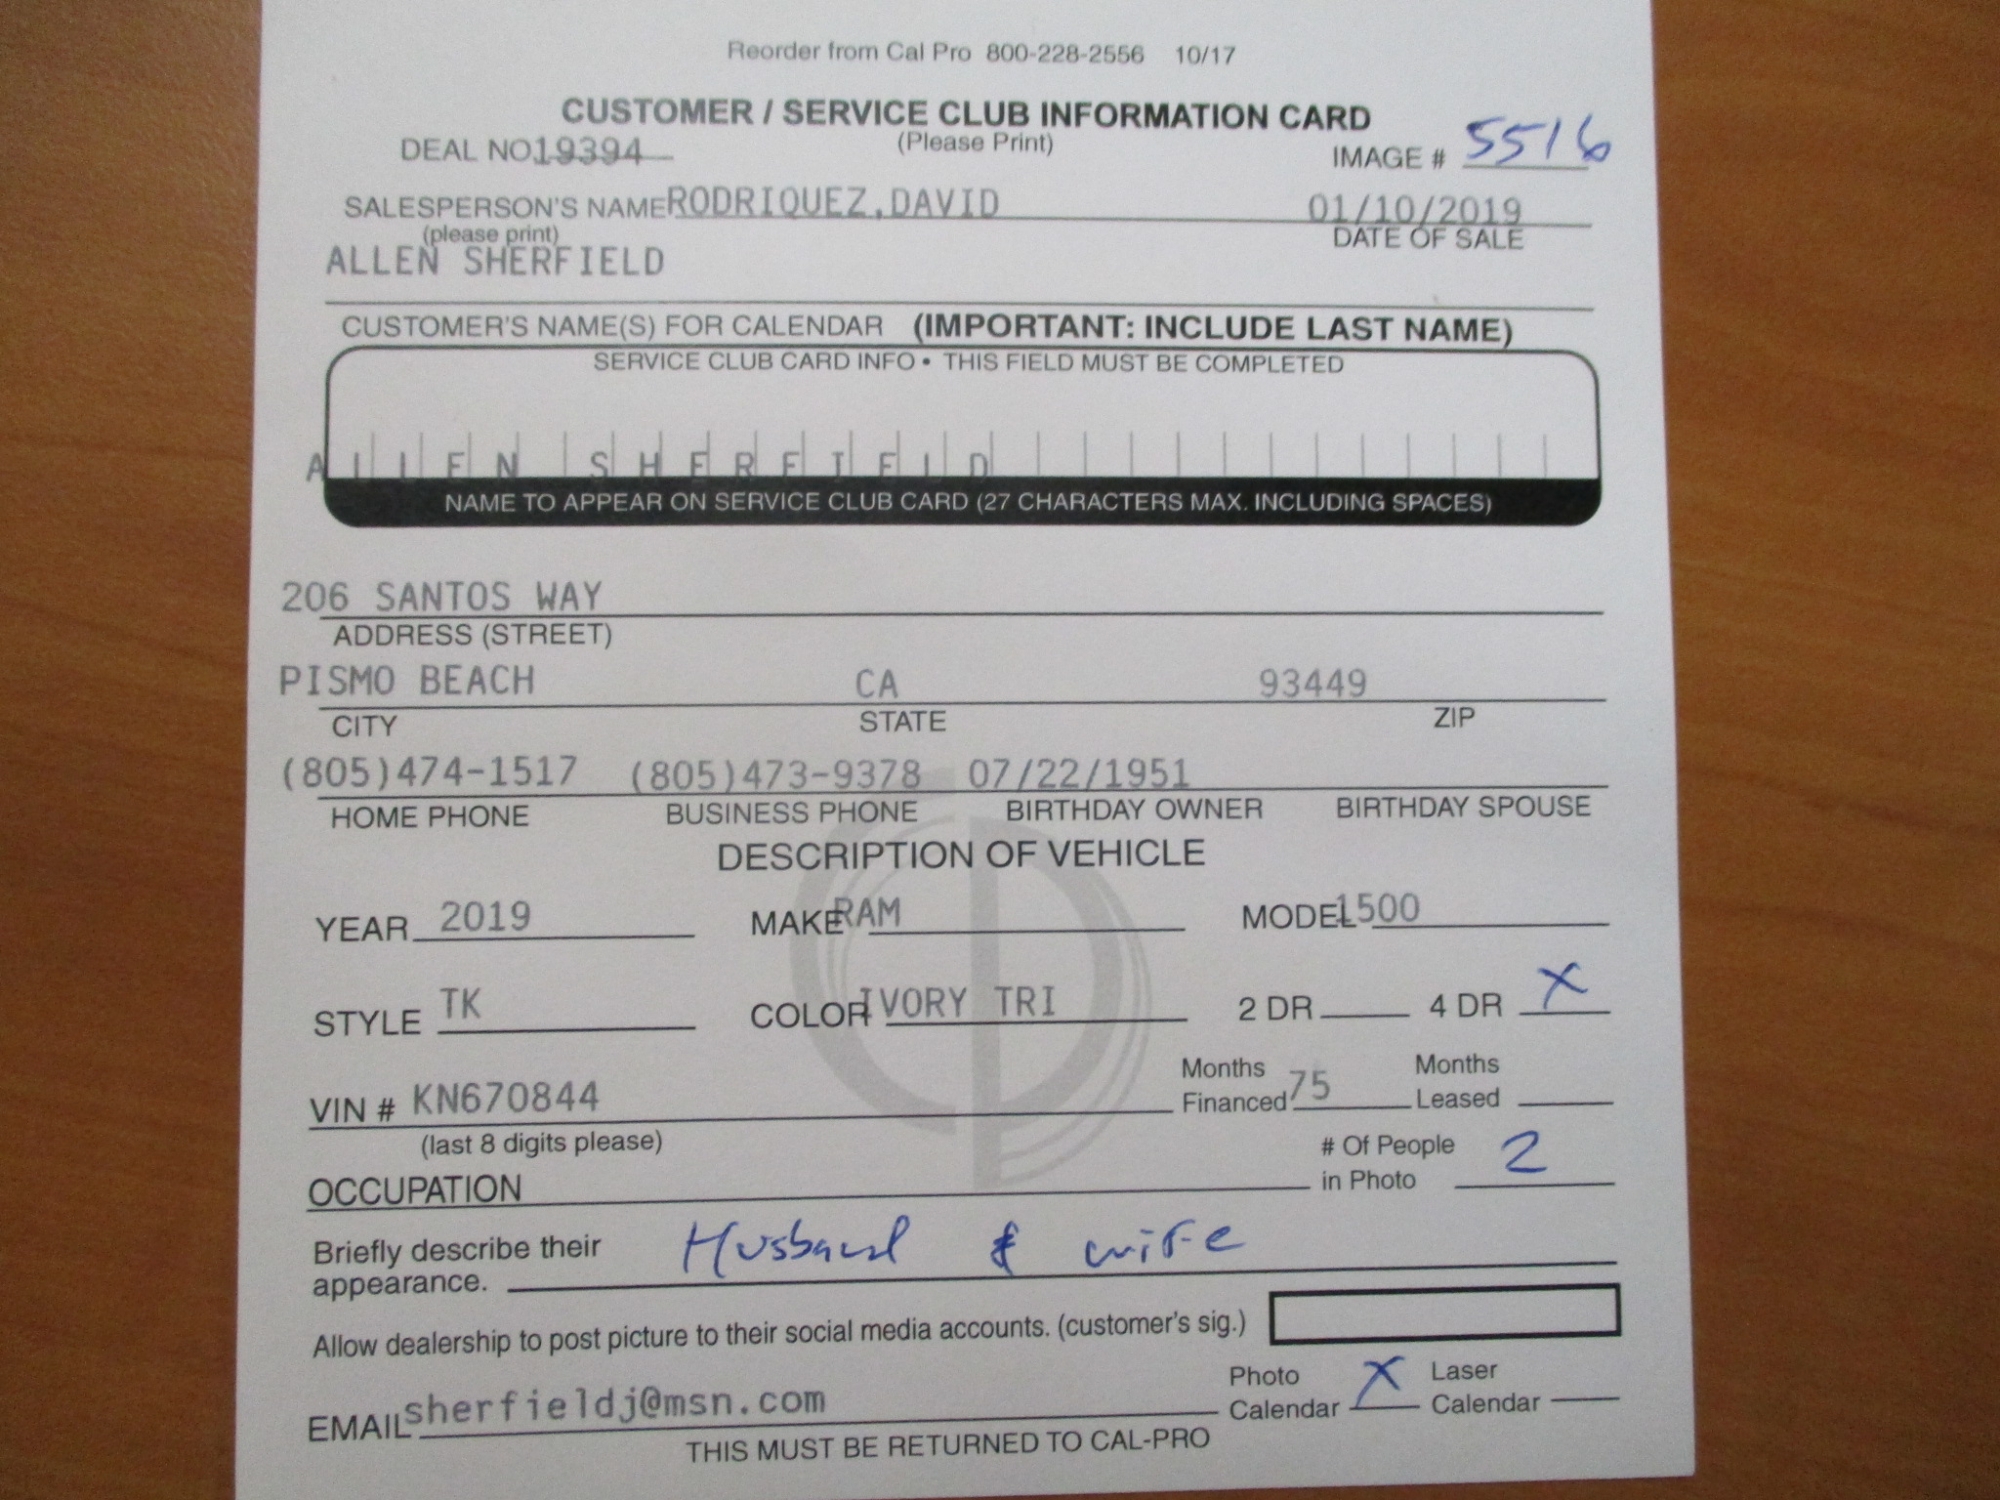 Reorder from Cal Pro 800-228-2556 10/17
CUSTOMER / SERVICE CLUB INFORMATION CARD
DEAL NO 19394 (Please Print) IMAGE # 5516
SALESPERSON'S NAME RODRIQUEZ,DAVID 01/10/2019
(please print) DATE OF SALE
ALLEN SHERFIELD
CUSTOMER'S NAME(S) FOR CALENDAR (IMPORTANT: INCLUDE LAST NAME)
SERVICE CLUB CARD INFO • THIS FIELD MUST BE COMPLETED
ALLEN SHERFIELD
NAME TO APPEAR ON SERVICE CLUB CARD (27 CHARACTERS MAX. INCLUDING SPACES)
206 SANTOS WAY
ADDRESS (STREET)
PISMO BEACH CA 93449
CITY STATE ZIP
(805)474-1517 (805)473-9378 07/22/1951
HOME PHONE BUSINESS PHONE BIRTHDAY OWNER BIRTHDAY SPOUSE
DESCRIPTION OF VEHICLE
YEAR 2019 MAKE RAM MODEL 1500
STYLE TK COLOR IVORY TRI 2 DR 4 DR X
VIN # KN670844 Months Financed 75 Months Leased
(last 8 digits please)
OCCUPATION # Of People in Photo 2
Briefly describe their appearance. Husband & wife
Allow dealership to post picture to their social media accounts. (customer's sig.)
EMAIL sherfieldj@msn.com Photo Calendar X Laser Calendar
THIS MUST BE RETURNED TO CAL-PRO